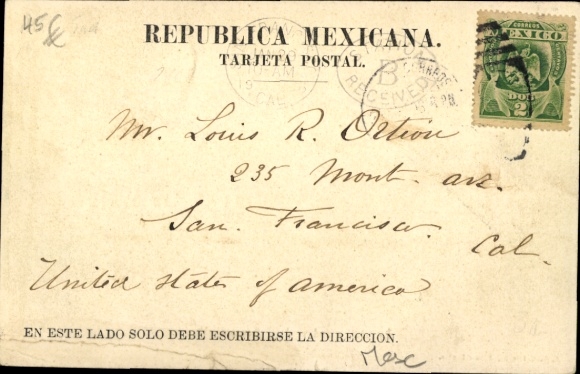 45
REPUBLICA MEXICANA.
TARJETA POSTAL.
CORREOS
MEXICO
DOS
2
RECEIVED
B
CAL.
Mr. Louis R. Ortion
235 Mont. ave.
San. Francisco.
Cal.
United states of america
EN ESTE LADO SOLO DEBE ESCRIBIRSE LA DIRECCION.
Mexc